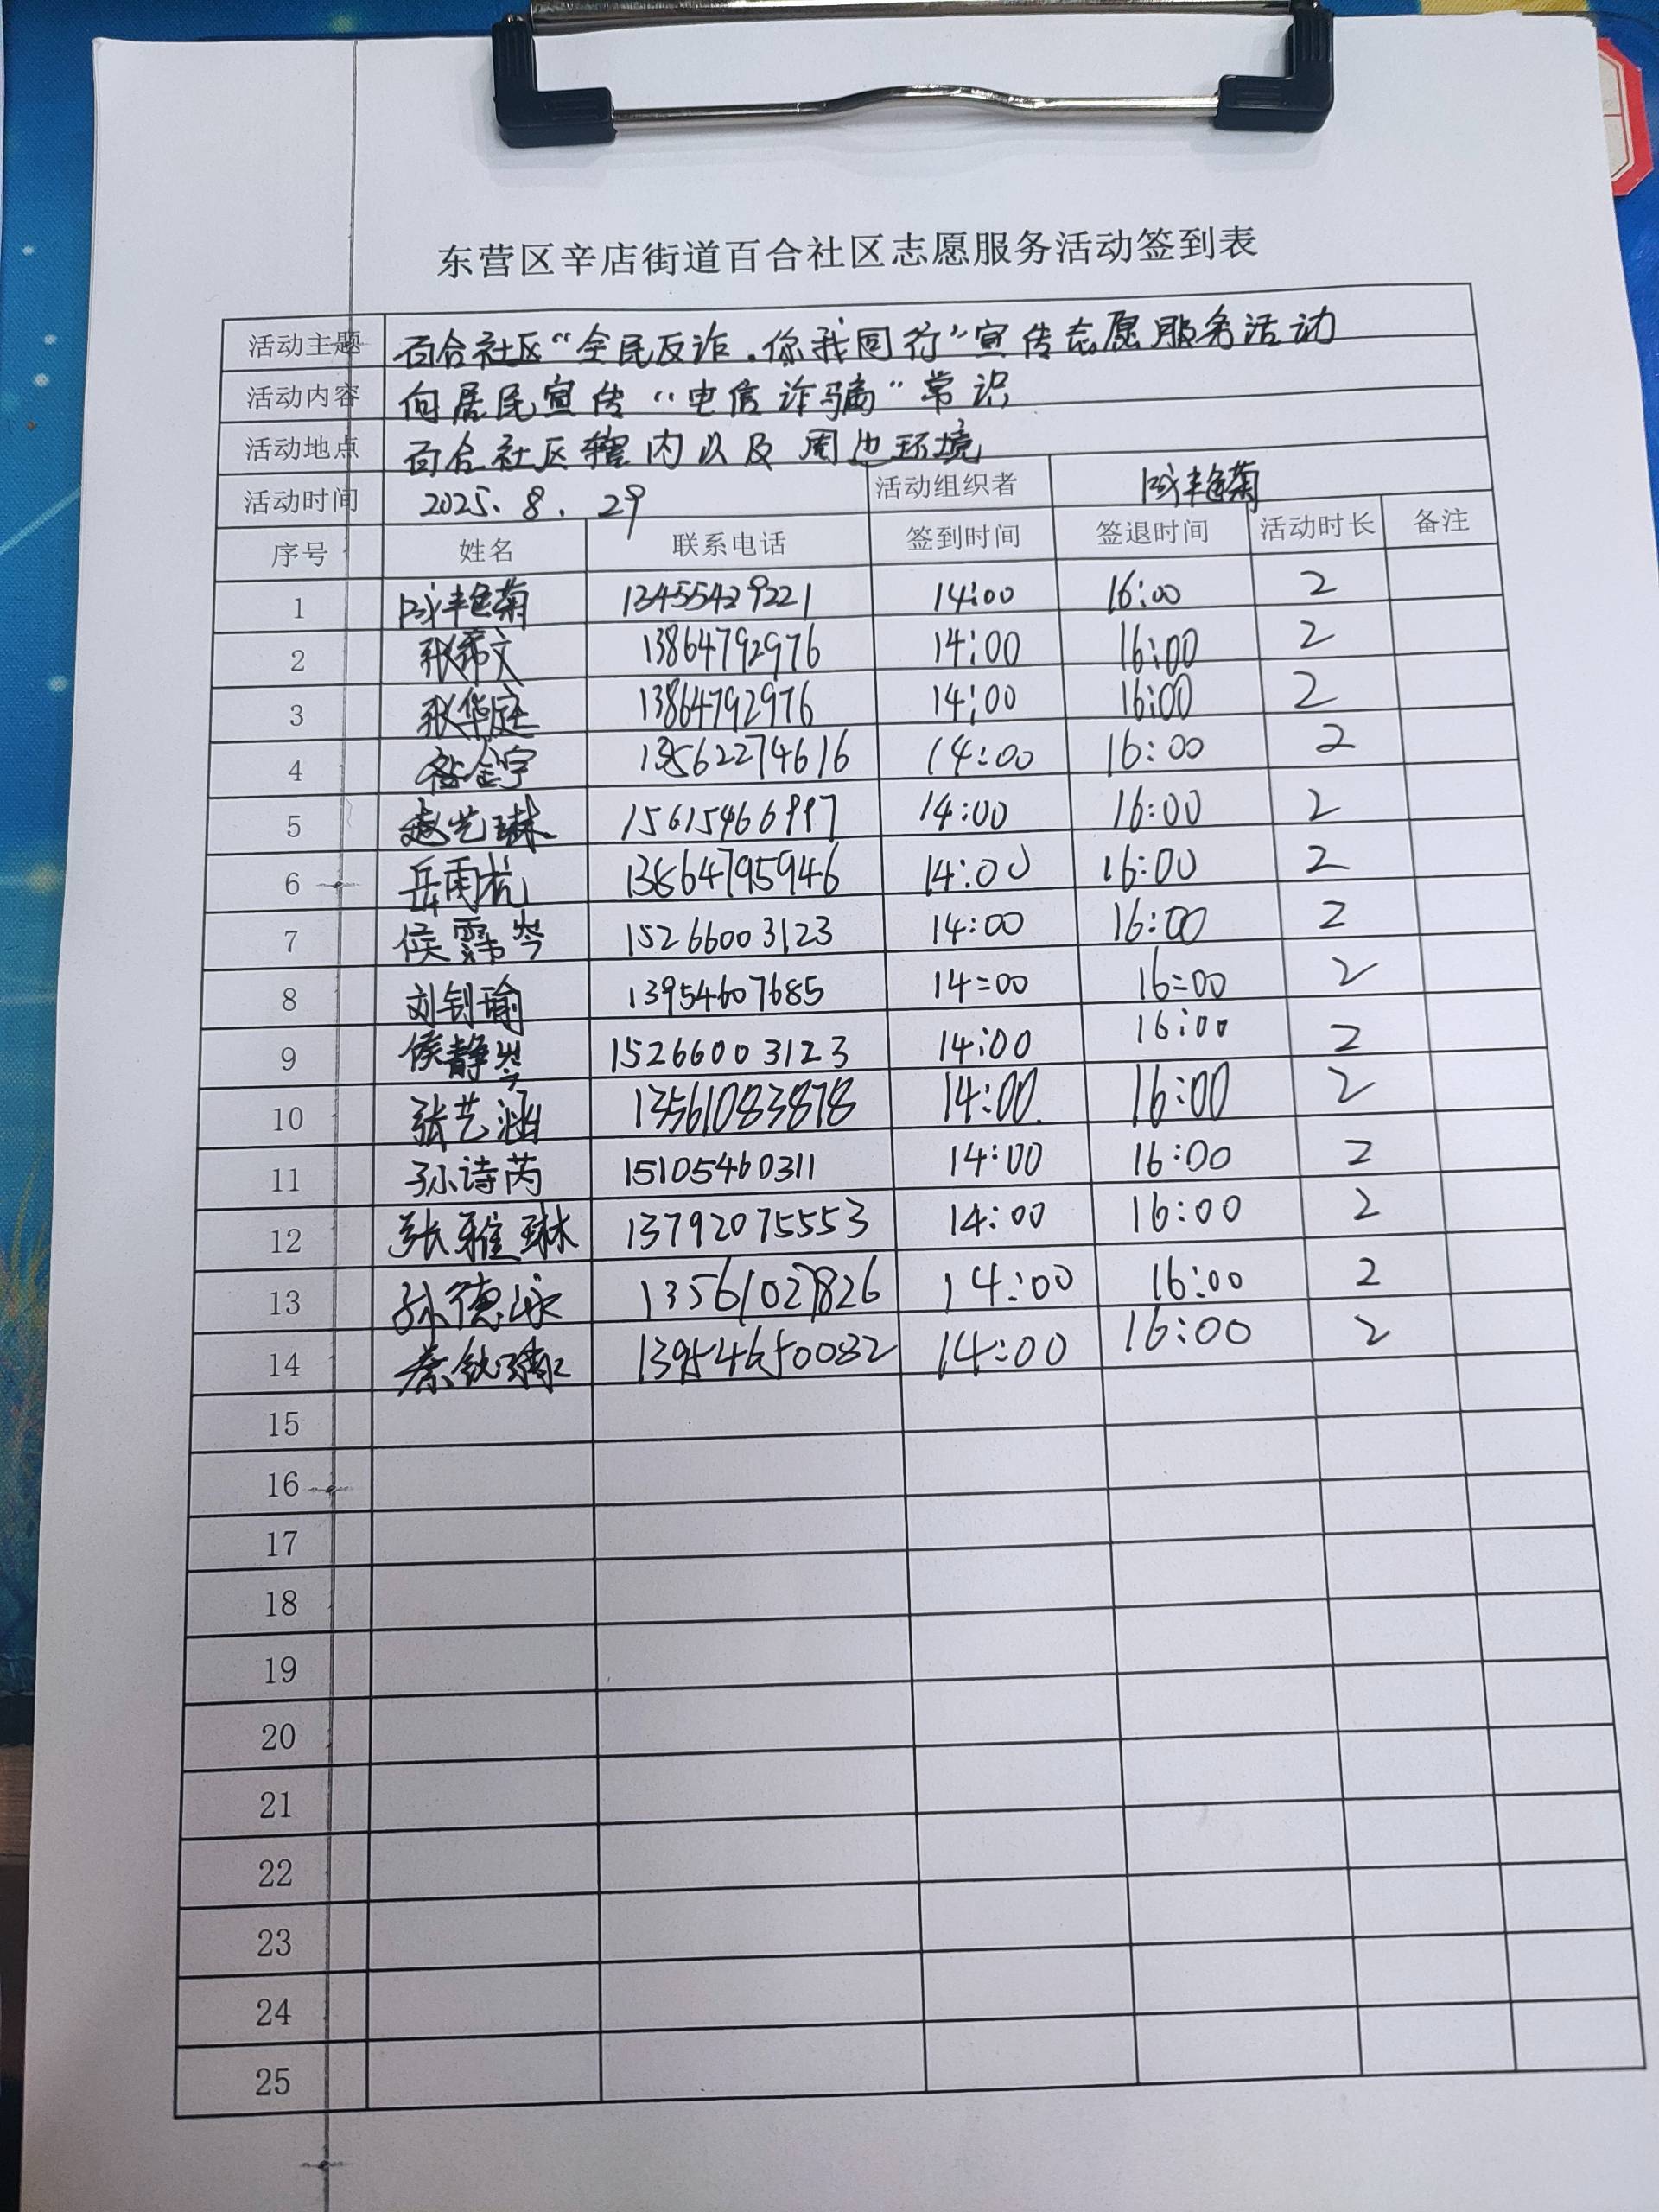 东营区辛店街道百合社区志愿服务活动签到表
活动主题 百合社区“全民反诈.你我同行”宣传志愿服务活动
活动内容 向居民宣传“电信诈骗”常识
活动地点 百合社区辖内以及周边环境
活动时间 2025.8.29 活动组织者 艳菊
序号 姓名 联系电话 签到时间 签退时间 活动时长 备注
1 艳菊 13455429221 14:00 16:00 2
2 张希文 13864792976 14:00 16:00 2
3 张华庭 13864792976 14:00 16:00 2
4 金宇 13562274616 14:00 16:00 2
5 赵艺琳 14:00 16:00 2
6 岳雨杭 13864795946 14:00 16:00 2
7 侯霈岑 15266003123 14:00 16:00 2
8 刘钊瑜 13954607685 14:00 16:00 2
9 侯静岑 15266003123 14:00 16:00 2
10 张艺涵 13561083878 14:00 16:00 2
11 孙诗芮 15105460311 14:00 16:00 2
12 张雅琳 13792075553 14:00 16:00 2
13 孙德泳 13561027826 14:00 16:00 2
14 13954650082 14:00 16:00 2
15
16
17
18
19
20
21
22
23
24
25